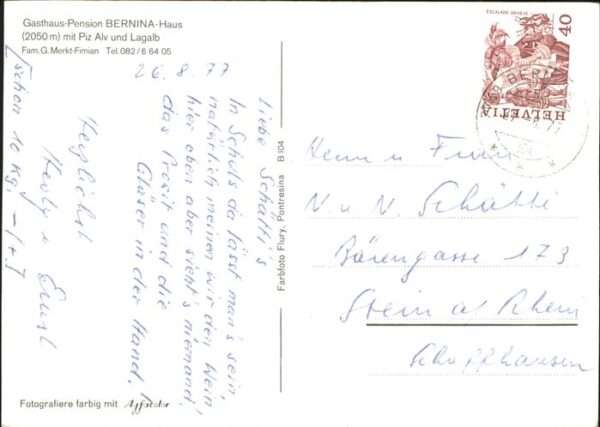 Gasthaus-Pension BERNINA-Haus
(2050 m) mit Piz Alv und Lagalb
Fam. G. Merkt-Fimian Tel. 082/6 64 05
26.8.77
Liebe Schätti's
In Schuls da lässt man's sein,
natürlich meinen wir den Wein,
hier oben aber sieht's niemand,
das Prosit und die
Gläser in der Hand.
Herzlichst
Hedy u Ernst
[schon 10 kg. – (+)]
Fotografiere farbig mit Agfacolor
Farbfoto Flury, Pontresina B 104
ESCALADE GENEVE
40
HELVETIA
BERN
77
Herrn u Frau
N. u N. Schätti
Bärengasse 173
Stein a/ Rhein
Schaffhausen